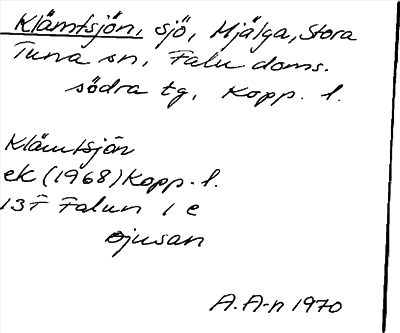 Klämtsjön, sjö, Mjälga, Stora
Tuna sn, Falu doms.
södra tg, Kopp. l.
Klämtsjön
ek (1968) Kopp. l.
13F Falun 1 e
Ojusan
A. A-n 1970